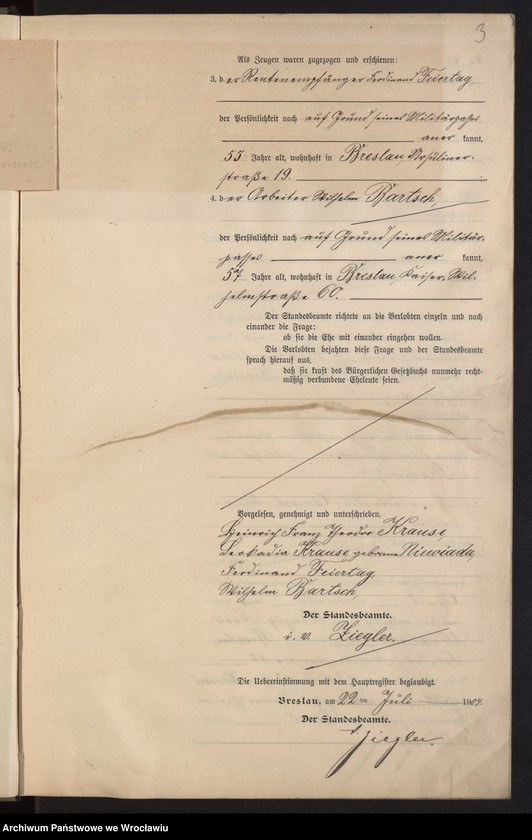 3
Als Zeugen waren zugezogen und erschienen:
3. der Rentenempfänger Ferdinand Feiertag,
der Persönlichkeit nach auf Grund seines Militärpasses
aner kannt,
55 Jahre alt, wohnhaft in Breslau,
straße 19.
4. der Arbeiter Wilhelm Bartsch,
der Persönlichkeit nach auf Grund seines Militär-
passes aner kannt,
57 Jahre alt, wohnhaft in Breslau, Kaiser-Wil-
helmstraße 60.
Der Standesbeamte richtete an die Verlobten einzeln und nach
einander die Frage:
ob sie die Ehe mit einander eingehen wollen.
Die Verlobten bejahten diese Frage und der Standesbeamte
sprach hierauf aus,
daß sie kraft des Bürgerlichen Gesetzbuchs nunmehr recht-
mäßig verbundene Eheleute seien.
Vorgelesen, genehmigt und unterschrieben.
Heinrich Franz Theodor Krause,
Leokadia Krause, geborene Niewiada,
Ferdinand Feiertag,
Wilhelm Bartsch,
Der Standesbeamte.
i. V. Ziegler.
Die Uebereinstimmung mit dem Hauptregister beglaubigt.
Breslau, am 22 ten Juli 1904.
Der Standesbeamte.
Ziegler.
Archiwum Państwowe we Wrocławiu